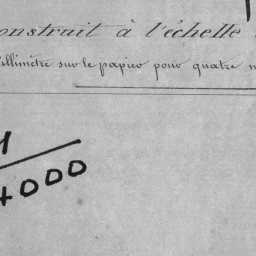 onstruit à l'échelle
illimètre sur le papier pour quatre m
1
4000